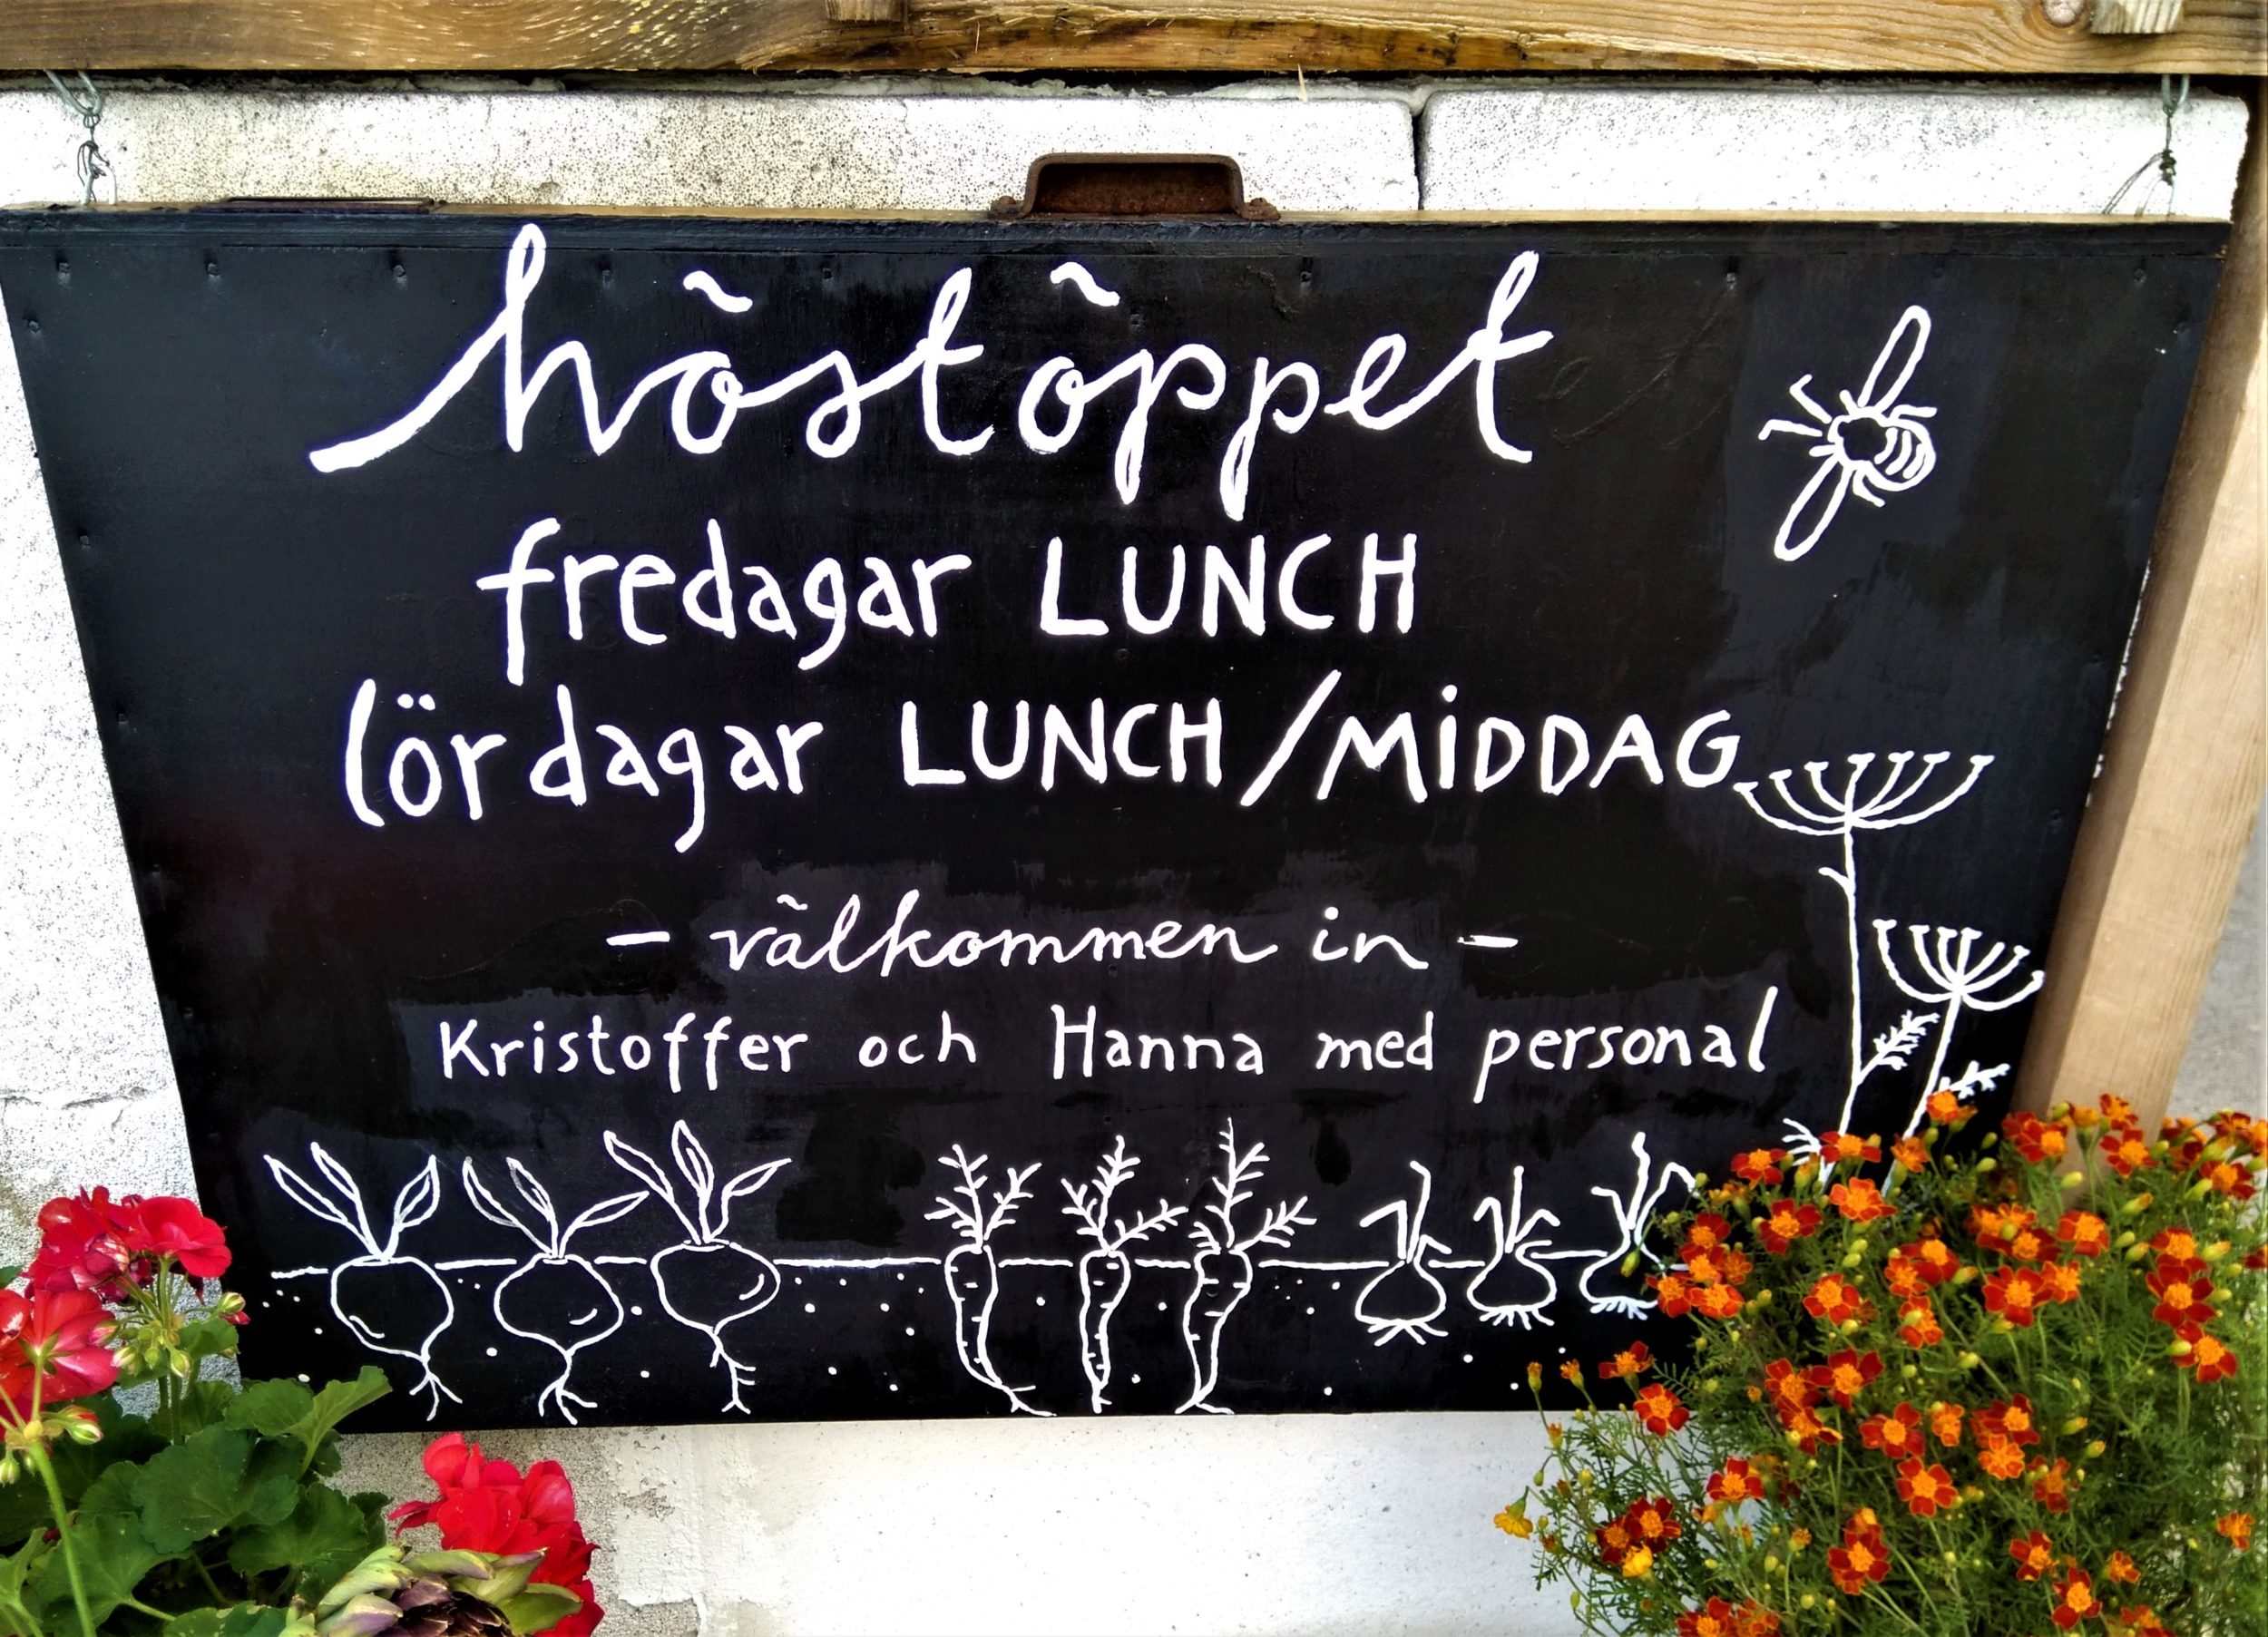 höstöppet
fredagar LUNCH
lördagar LUNCH/MiDDAG
- välkommen in -
Kristoffer och Hanna med personal